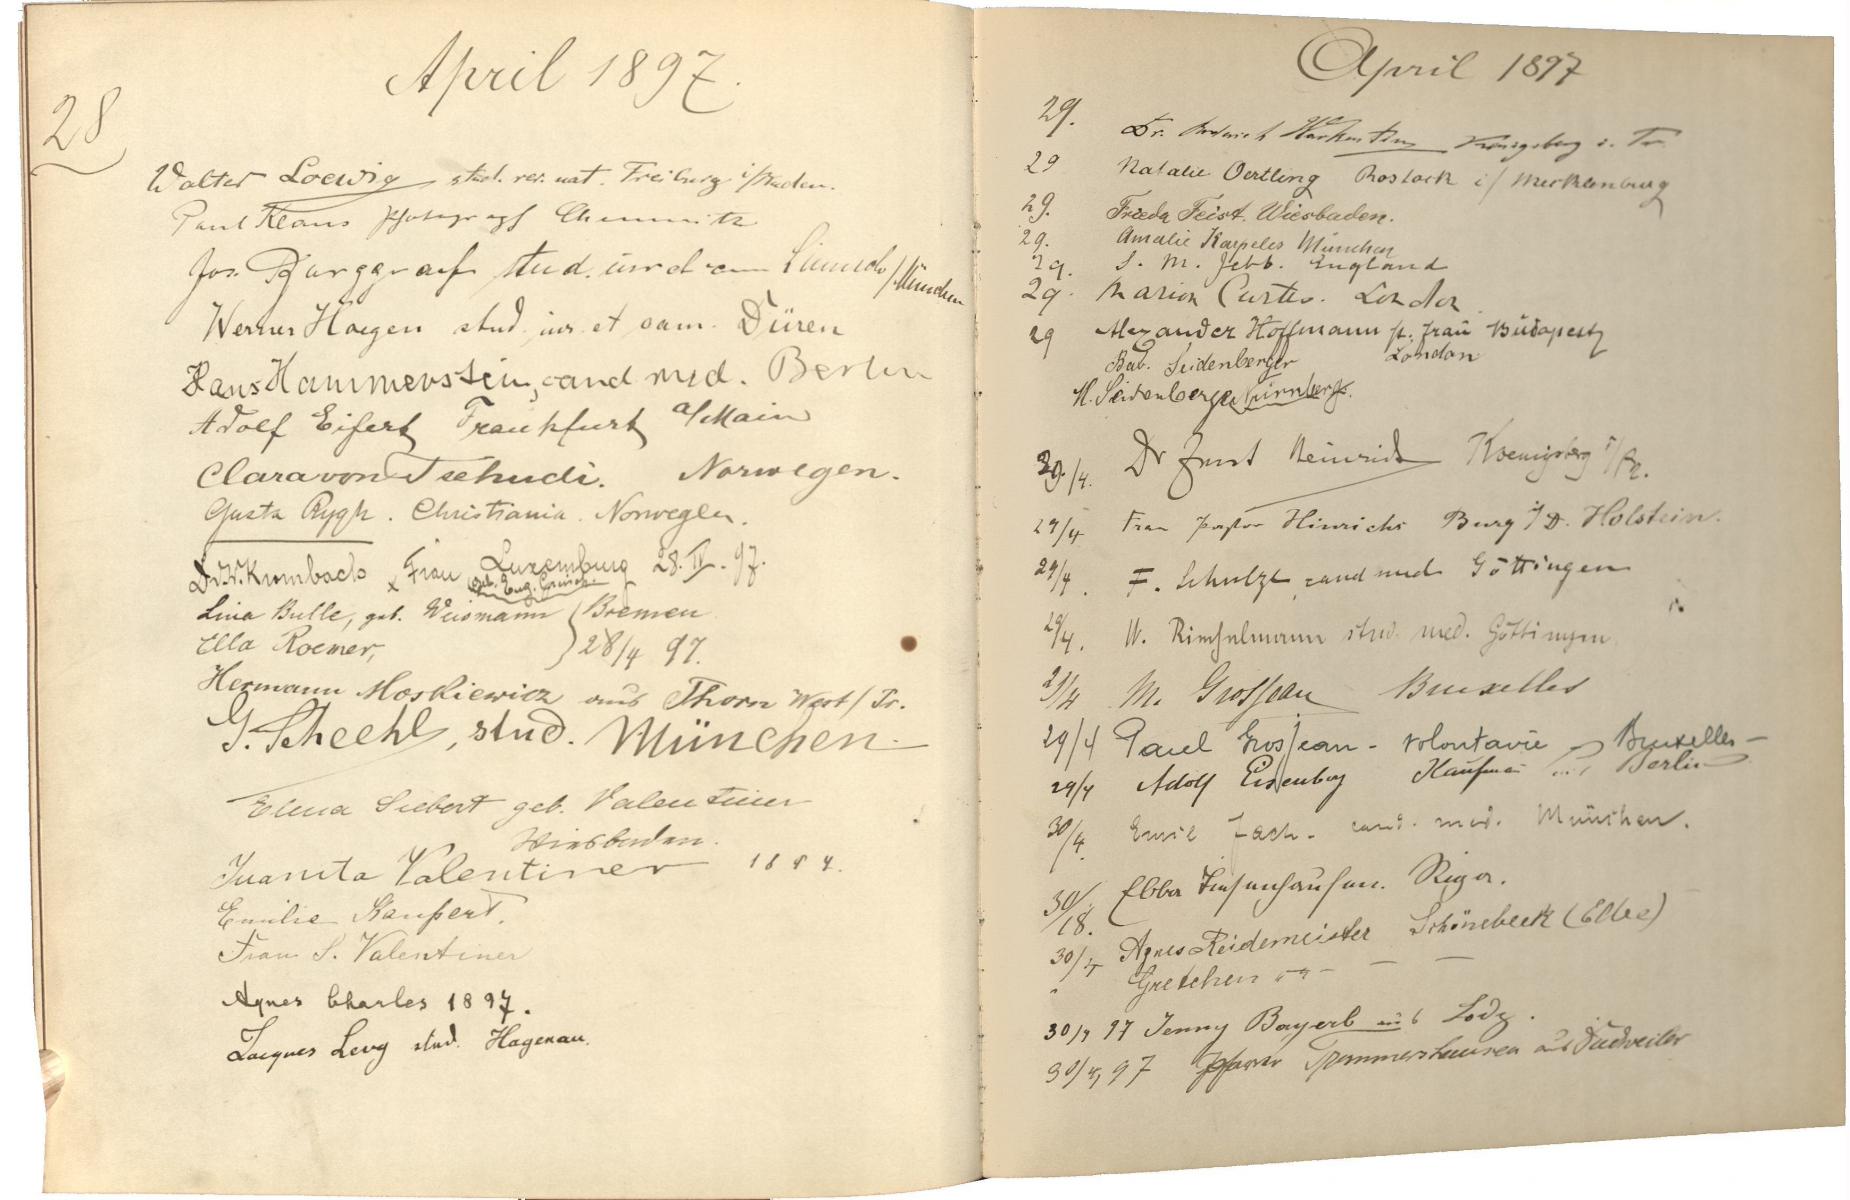 April 1897.
28
Walter Loewig stud. rer. nat. Freiburg i/Baden.
Paul Klaus Chemnitz
Jos. Burggraf stud. /München
Werner Hoegen stud. jur. et cam. Düren
Hans Hammerstein, cand med. Berlin
Adolf Eifert Frankfurt a/Main
Clara von Tschudi. Norwegen.
Gusta Rygh. Christiania. Norwegen.
Dr. W. Krombach & Frau Luxemburg 28. IV. 97.
Lina Bulle, geb. Weismann } Bremen
Ella Roemer, 28/4 97.
Hermann Moskiewicz aus Thorn West/Pr.
G. Scheehl, stud. München
Elena Siebert geb. Valentiner
Wiesbaden.
Juanita Valentiner 1897.
Emilie Kaupert.
Frau S. Valentiner
Agnes Charles 1897.
Jacques Levy stud. Hagenau.
April 1897
29. Dr. Königsberg i. Pr.
29 Natalie Oertling Rostock i/Mecklenburg
29. Frieda Feist. Wiesbaden.
29. Amalie Karpeles München
29. S. M. Jebb. England
29. Marion Curtis. London
29 Alexander Hoffmann u. Frau Budapest
Bab. Seidenberger London
H. Seidenberger Nürnberg.
29./4. Dr Ernst Heinrich Koenigsberg i/Pr.
29/4 Frau Pastor Hinrichs Burg i/D. Holstein.
29/4. F. Schulze, cand med Göttingen
29/4. W. stud. med. Göttingen
29/4 M. Grosjean Bruxelles
29/4 Paul Grosjean - volontaire Bruxelles -
29/4 Adolf Eisenberg Kaufmann aus Berlin
30/4. Emil cand. med. München.
30/18. Ebba Riga.
30/4 Agnes Reidemeister Schönebeck (Elbe)
" Gretchen " — —
30/4 97 Jenny Bayerl aus Lodz.
30/4, 97 Pfarrer Trommershausen aus Dudweiler